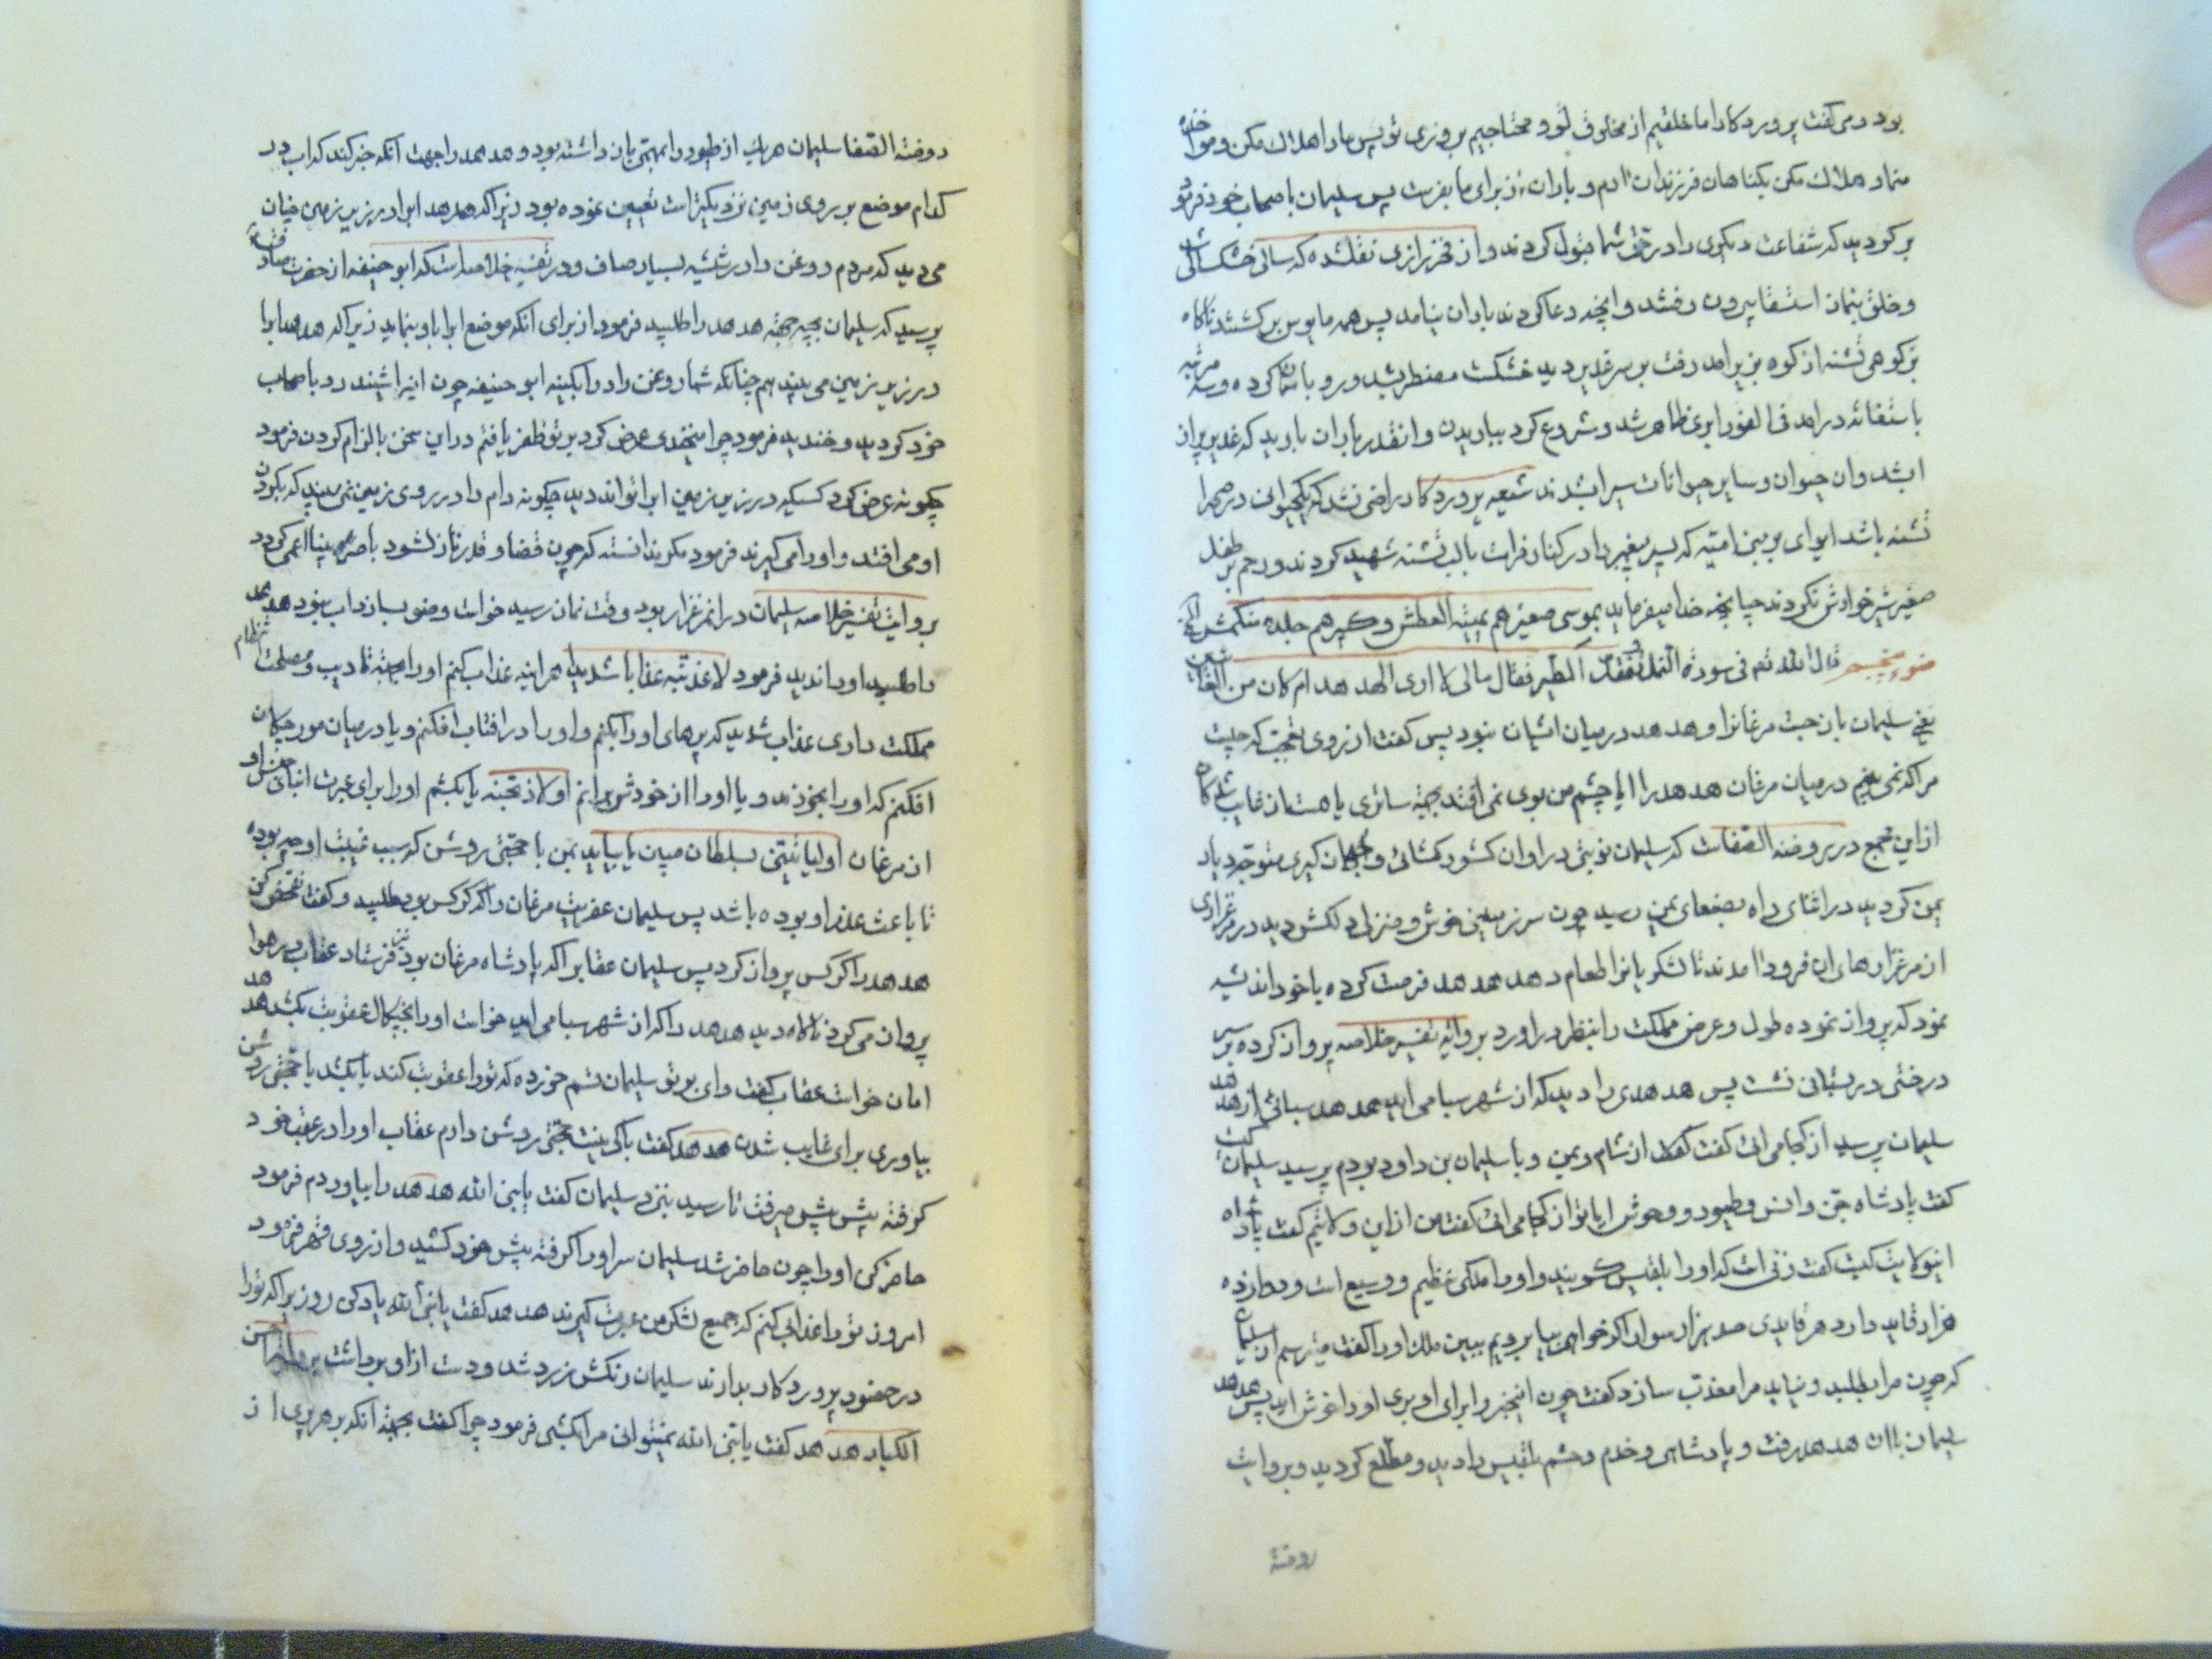 بود و می کفت پروردکارا ما خلقیم از مخلوق تو و محتاجیم بروزی تو پس ما را هلاک مکن و مواخذه
منما و هلاک مکن بکناهان فرزندان ادم و باران از برای ما بفرست پس سلیمان باصحاب خود فرمود
بر کردید که شفاعت دیکری را در حق شما قبول کردند و از فخر رازی نقلشده که سالی خشکسالی شد
و خلق بنماز استسقا بیرون رفتند و انچه دعا کردند باران نیامد پس همه مایوس بر کشتند ناکاه
بز کوهی تشنه از کوه بزیر امد رفت بر سر غدیر دید خشکست مضطر شد و رو باسمان کرده و سه مرتبه
باستغاثه در امد فی الفور ابری ظاهر شد و شروع کرد بباریدن و انقدر باران بارید که غدیر پر از
ابشد و ان حیوان و سایر حیوانات سیراب شدند شیعه پروردکار راضی نشد که یکحیوانی در صحرا
تشنه باشد ای وای بر بنی امیه که پسر پیغمبر را در کنار فرات با لب تشنه شهید کردند و رحم بر طفل
صغیر شیر خوارش نکردند چنانچه خدا میفرماید بموسی صغیرهم یمیته العطش و کبیرهم جلده منکمش الخ
ضوء پنجم قال الله تع فی سورة النمل و تفقد الطیر فقال مالی لا اری الهدهد ام کان من الغائبین
یعنی سلیمان باز جست مرغانرا و هدهد در میان ایشان نبود پس کفت از روی تعجب که چیست
مرا که نمی بینم در میان مرغان هدهد را ایا چشم من بوی نمی افتد بجهة ساتری یا هست از غایب شدکان
از این مجمع در روضة الصفاست که سلیمان نوبتی در اوان کشور کشائی و جهان کیری متوجه دیار
یمن کردید در اثنای راه بصنعای یمن رسید چون سرزمینی خوش و منزلی دلکش دید در مرغزاری
از مرغزارهای ان فرود امدند تا لشکریانرا طعام دهد هدهد فرصت کرده با خود اندیشه
نمود که پرواز نموده طول و عرض مملکت را بنظر در اورد بروایة تفسیر خلاصه پرواز کرده بر سر
درختی در بستانی نشست پس هدهدی را دید که از شهر سبا می اید هدهد سبائی از هدهد
سلیمان پرسید از کجا می ائی کفت از شام و یمن و با سلیمان بن داود بودم پرسید سلیمان کیست
کفت پادشاه جن و انس و طیور و وحوش ایا تو از کجا می ائی کفت من از این ولایتم کفت پادشاه
اینولایت کیست کفت زنی است که او را بلقیس کویند و او را ملکی عظیم و وسیع است و دوازده
هزار قاید دارد هر قایدی صد هزار سوار اکر خواهی بیا برویم ببین ملک او را کفت میترسم از سلیمان
که چون مرا بطلبد و نیاید مرا معذب سازد کفت چون اینخبر را برای او بری او را خوش اید پس هدهد
سلیمان با ان هدهد رفت و پادشاهی و خدم و حشم بلقیس را دید و مطلع کردید و بروایت
روضة
روضة الصفا سلیمان هر یک از طیور را بمهمی باز داشته بود و هدهد را جهت انکه خبر کند که اب در
کدام موضع بر روی زمین نزدیکتر است تعیین نموده بود زیرا که هدهد اب را در زیر زمین چنان
می دید که مردم روغن را در شیشه بسیار صاف و در تفسیر خلاصه است که ابو حنیفه از حضرت صادق
پرسید که سلیمان بچه جهة هدهد را طلبید فرمود از برای انکه موضع اب را باو بنماید زیرا که هدهد اب را
در زیر زمین می بیند هم چنانکه شما روغن را در ابکینه ابو حنیفه چون اینرا شنید رو باصحاب
خود کردید و خندید فرمود چرا میخندی عرض کرد بر تو ظفر یافتم در این سخن بالزام کردن فرمود
چکونه عرض کرد کسیکه در زیر زمین اب را تواند دید چکونه دام را در روی زمین نمی بیند که بکردن
او می افتد و او را می کیرند فرمود مکر ندانسته که چون قضا و قدر نازلشود باصره بینا اعمی کردد
بروایت تفسیر خلاصه سلیمان در ان مرغزار بود وقت نماز رسید خواست وضو بسازد اب نبود هدهد
را طلبید او را ندید فرمود لاعذبنه عذابا شدیدا هر اینه عذاب کنم او را بجهة تادیب و مصلحت انتظام
مملکت داری عذاب شدید که پرهای او را بکنم و او را در افتاب افکنم و یا در میان مورچکان
افکنم که او را بخورند و یا او را از خودش برانم او لاذبحنه یا بکشم او را برای عبرت ابنای جنس او
از مرغان او لیاتینی بسلطان مبین یا بیاید بمن با حجتی روشن که سبب غیبت او چه بوده
تا باعث عذر او بوده باشد پس سلیمان عفریت مرغان را که کرکس بود طلبید و کفت تفحص کن
هدهد را کرکس پرواز کرد پس سلیمان عقاب را که پادشاه مرغان بود نیز فرستاد عقاب در هوا
پرواز می کرد ناکاه دید هدهد را که از شهر سبا می اید خواست او را بچنکال عقوبت بکشد هدهد
امان خواست عقاب کفت وای بر تو سلیمان قسم خورده که تو را عقوبت کند یا بکشد یا حجتی روشن
بیاوری برای غایب شدن هدهد کفت باکی نیست حجتی روشن دارم عقاب او را در عقب خود
کرفته پیش پیش میرفت تا رسید بنزد سلیمان کفت یا نبی الله هدهد را بیاوردم فرمود
حاضر کن او را چون حاضر شد سلیمان سر او را کرفته پیش خود کشید و از روی قهر فرمود
امروز تو را عذابی کنم که جمیع لشکر من عبرت کیرند هدهد کفت یا نبی الله یاد کن روزیرا که تو را
در حضور پروردکار بدارند سلیمان رنکش زرد شد و دست از او برداشت
هدهد کفت یا نبی الله نمیتوانی مرا بکشی فرمود چرا کفت بجهة انکه بر هر پری از